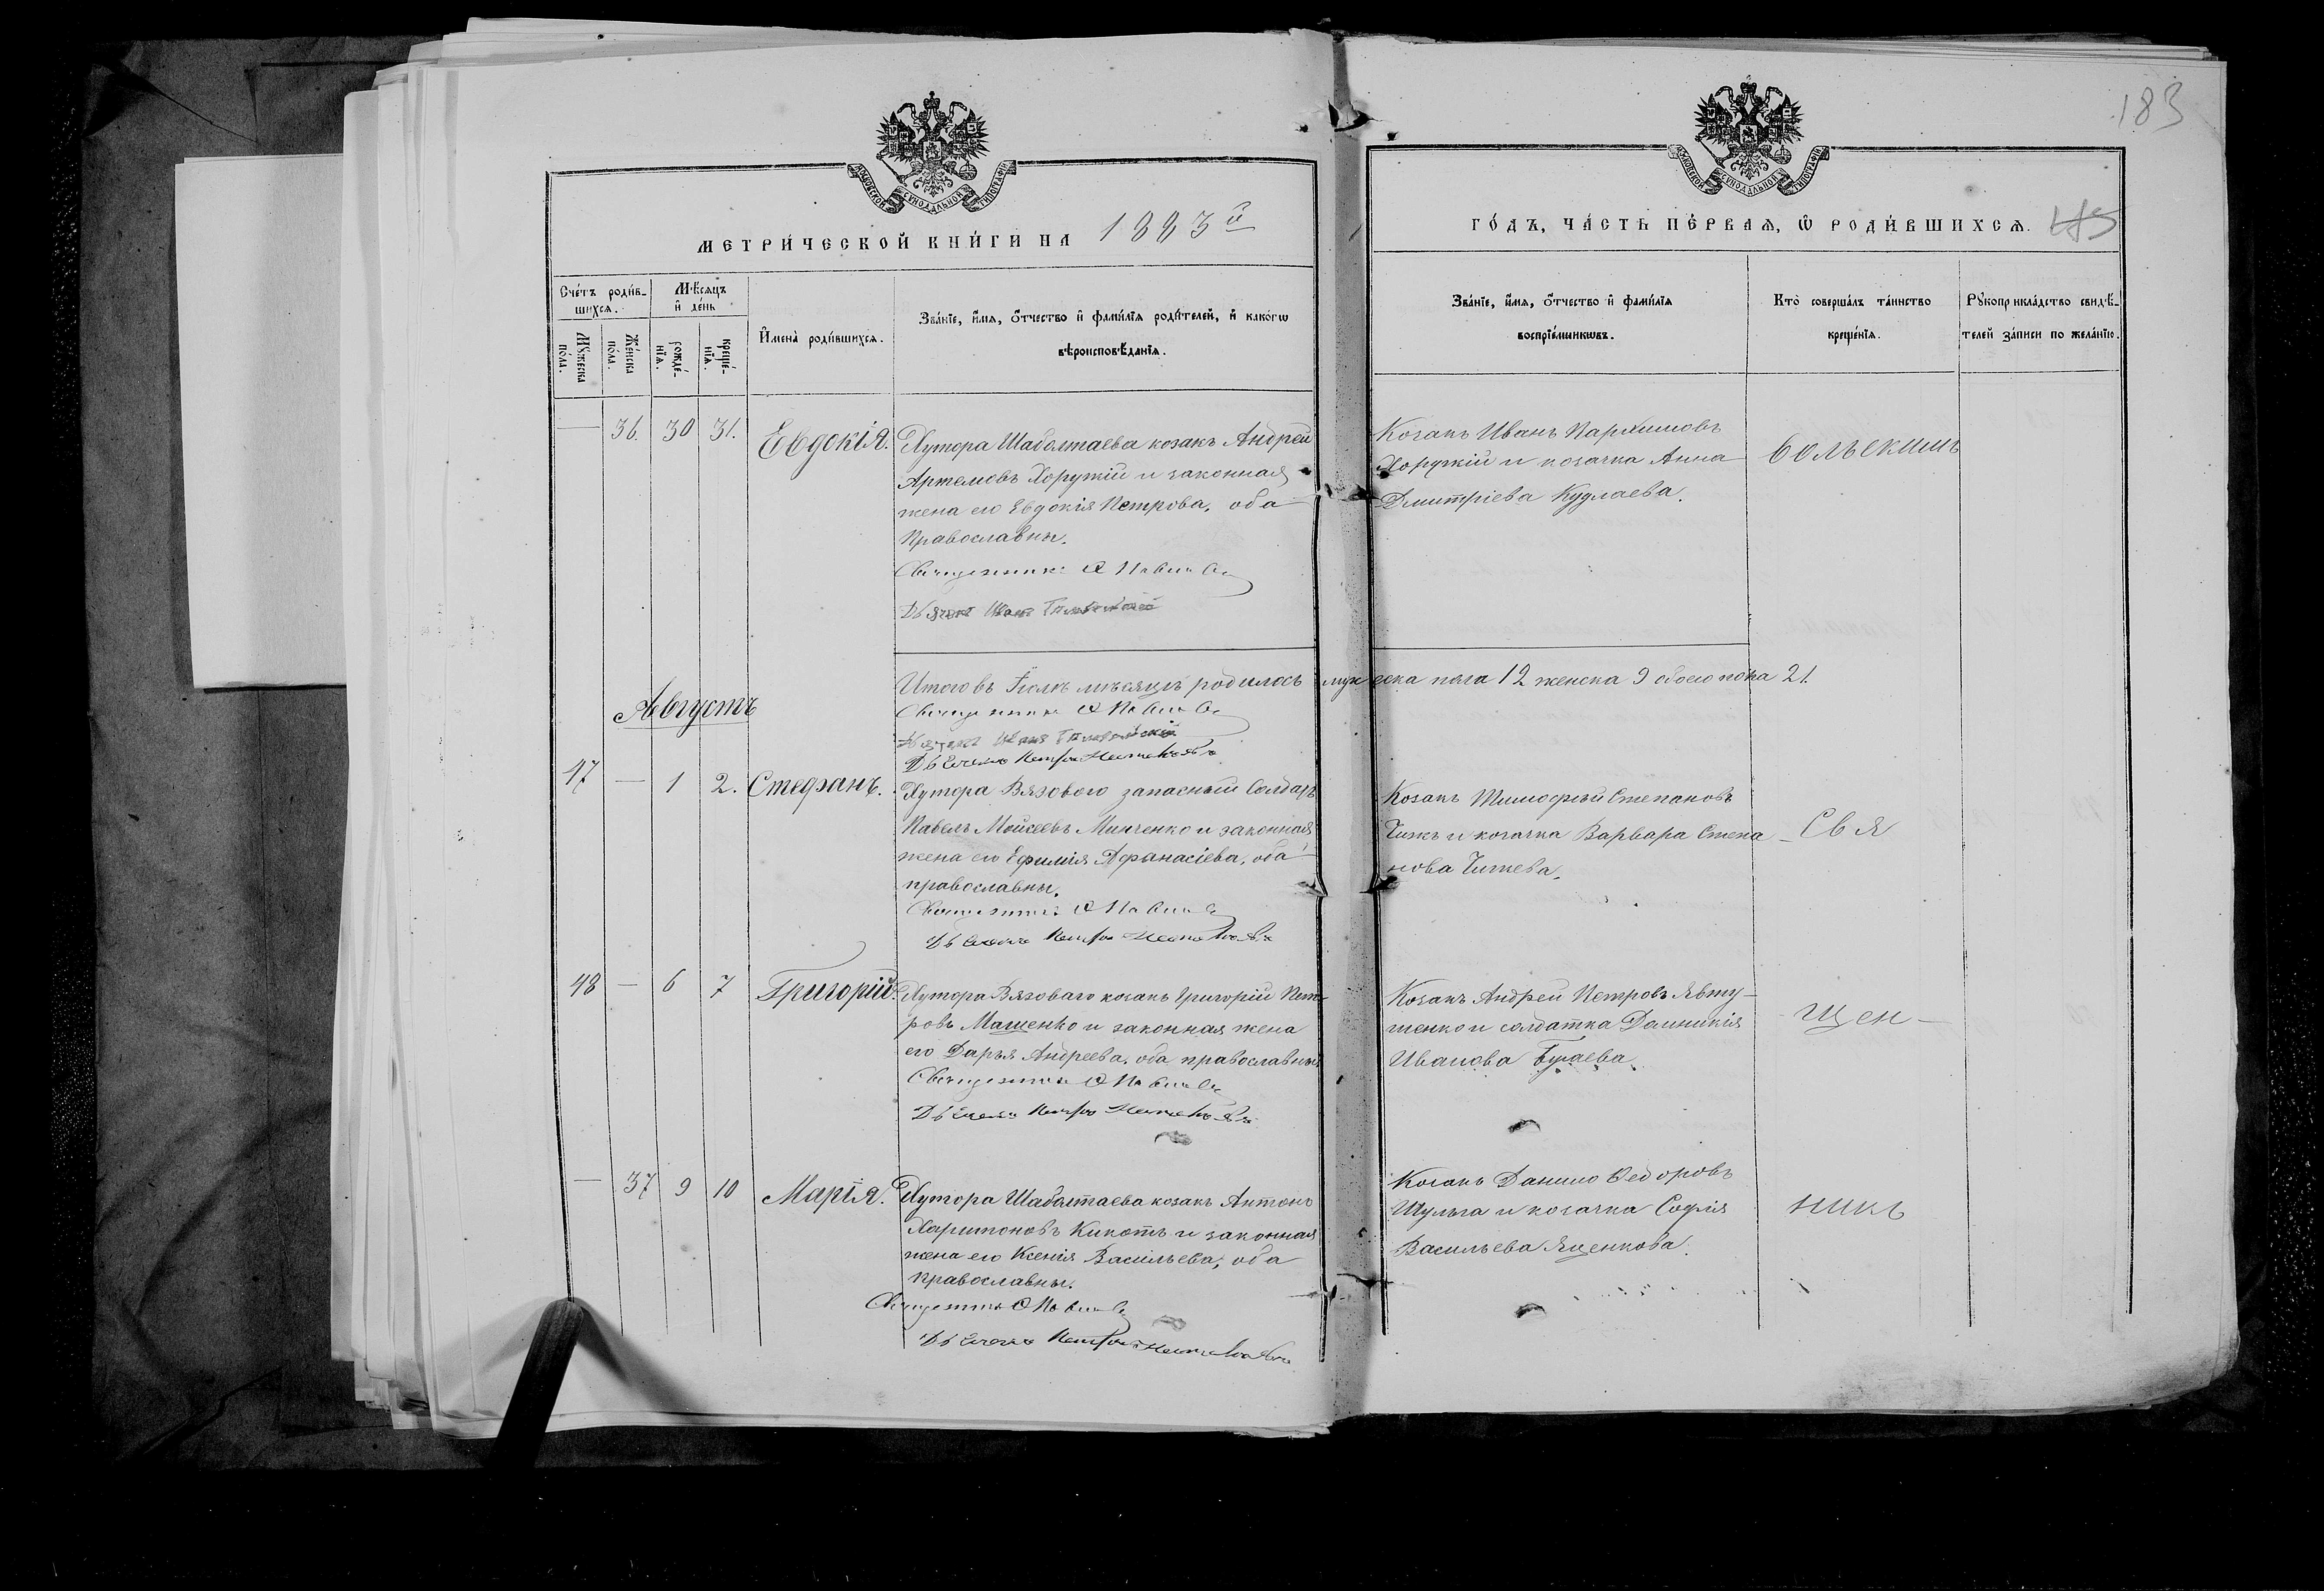 183
МОСКОВСКОЙ СѴНОДАЛЬНОЙ ТИПОГРАФІИ
МОСКОВСКОЙ СѴНОДАЛЬНОЙ ТИПОГРАФІИ
МЕТРИ́ЧЕСКОЙ КНИ́ГИ НА 1883й
ГО́ДЪ, ЧА́СТЬ ПЕ́РВАЯ, Ѡ РОДИ́ВШИХСЯ. 115
Сче́тъ роди́в-
шихся.
Мꙋ́жеска
по́ла.
Же́нска
по́ла.
Мѣ́сяцъ
и де́нь
рожде́-
нїя.
креще́-
нїя.
Имена̀ роди́вшихся.
Зва́нїе, и́мя, о́тчество и фами́лїя роди́телей, и како́гѡ
вѣроисповѣ́данїя.
Зва́нїе, и́мя, о́тчество и фами́лїя
воспрїе́мникѡвъ.
Кто̀ соверша́лъ та́инство
креще́нїя.
Рꙋкоприкла́дство свидѣ́-
телей за́писи по жела́нїю.
— 36. 30 31. Евдокія.
Хутора Шабалтаева козакъ Андрей
Артемовъ Хоружій и законная
жена его Евдокія Петрова, оба
православны.
Священникъ
Дьячекъ Иванъ
Козакъ Иванъ Пархимовъ
Хоружій и козачка Анна
Дмитріева Кудлаева.
Итого въ Іюлѣ мѣсяцѣ родилось мужеска пола 12 женска 9 обоего пола 21.
Священникъ
Дьячекъ Иванъ
Августъ
47 — 1 2. Стефанъ.
Хутора Вязового запасный Солдатъ
Павелъ Мойсеевъ Минченко и законная
жена его Ефимія Афанасіева, оба
православны.
Священникъ
Козакъ Тимофѣй Степановъ
Чижъ и козачка Варвара Степа-
нова Чижева.
Свя
48 — 6 7 Григорій.
Хутора Вязоваго козакъ Григорій Пет-
ровъ Мащенко и законная жена
его Дарья Андреева, оба православны.
Священникъ
Козакъ Андрей Петровъ Явту-
шенко и солдатка Домникія
Иванова Бугаева.
щен-
— 37 9 10 Марія.
Хутора Шабалтаева козакъ Антонъ
Харитоновъ Кикоть и законная
жена его Ксенія Васильева, оба
православны.
Священникъ
Козакъ Данило Ѳедоровъ
Шульга и козачка Софія
Васильева Яценкова.
никъ